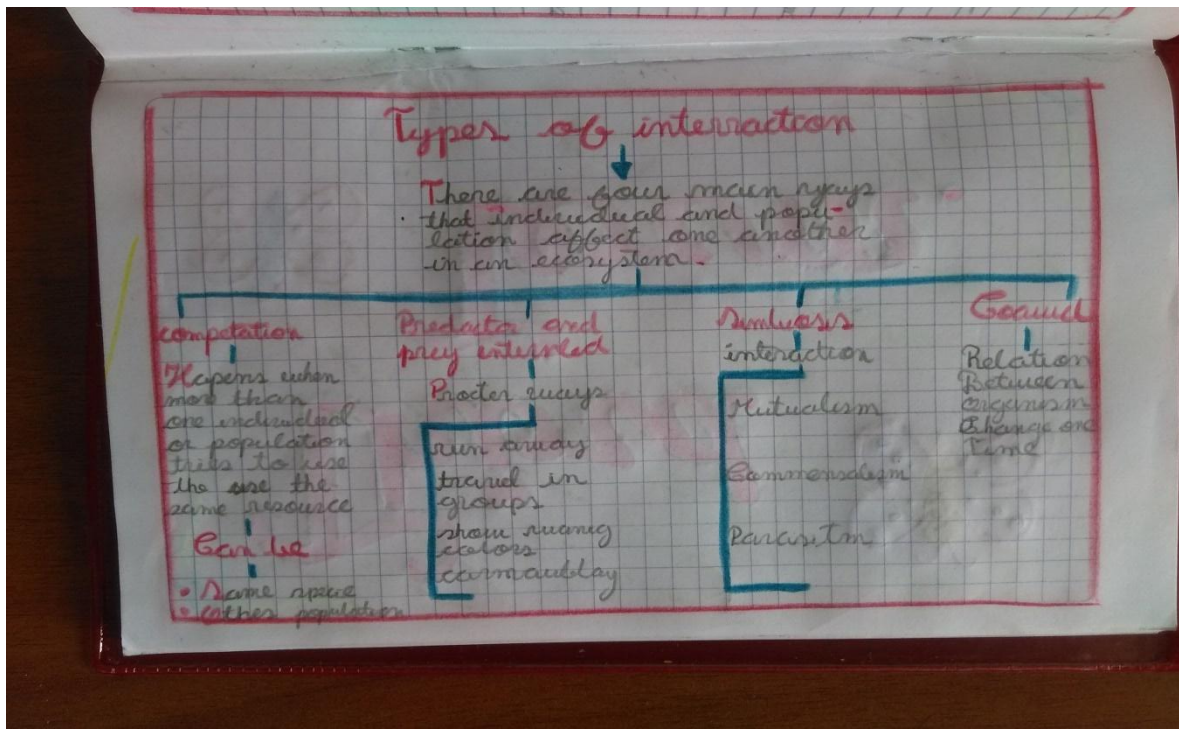 Types of interraction
There are four main ways
that individual and popu-
lation affect one another
in an ecosystem.
competation
Hapens when
more than
one individual
or population
tries to use
the use the
same resource
Can be
• Same specie
• Other population
Predator and
prey
Procter ways
run away
travel in
groups
show
colors
interaction
Mutualism
Parasitm
Relation
Between
organism
change
Time